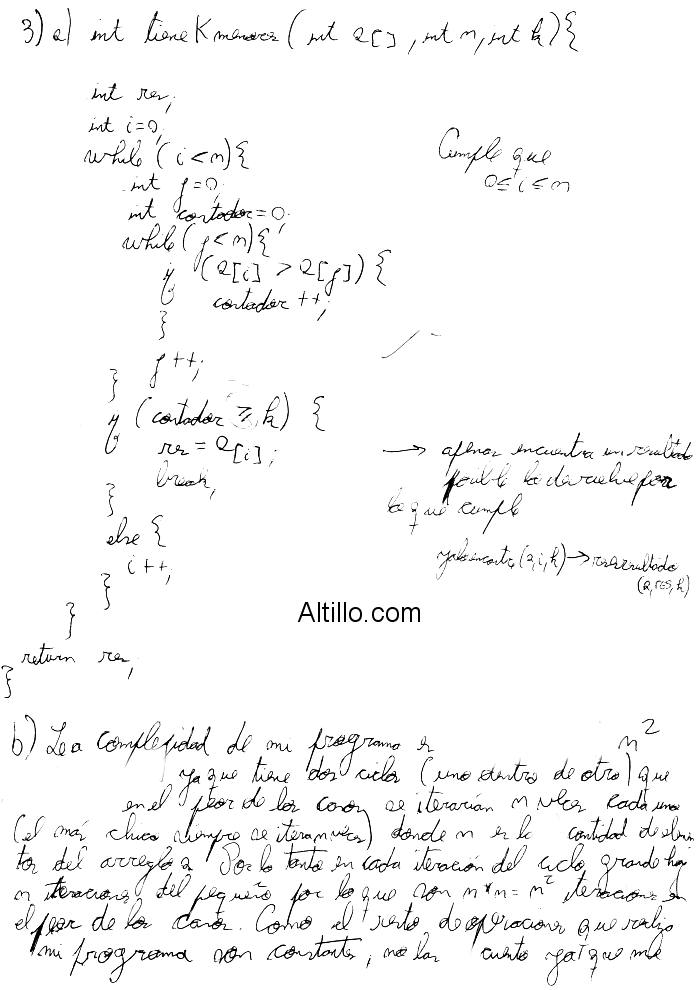 3) a) int tieneKmenores (int a[], int n, int k){
int res;
int i=0;
while (i<n){
Cumple que
0≤i≤n
int j=0;
int contador=0;
while(j<n){
if (a[i] > a[j]) {
contador ++;
}
j++;
}
if (contador ≥ k) {
res = a[i];
break;
}
→ apenas encuentra un resultado
posible lo devuelve por
lo que cumple
else {
i++;
}
yaloencontre(a,i,k) → resesresultado
(a,res,k)
}
Altillo.com
return res;
}
b) La complejidad de mi programa es n²
ya que tiene dos ciclos (uno dentro de otro) que
en el peor de los casos se iterarían n veces cada uno
(el más chico siempre se itera n veces) donde n es la cantidad de elemen
tos del arreglo a. Por lo tanto en cada iteración del ciclo grande hay
n iteraciones del pequeño por lo que son n*n= n² iteraciones en
el peor de los casos. Como el resto de operaciones que realiza
mi programa son constantes, no las cuento ya que me